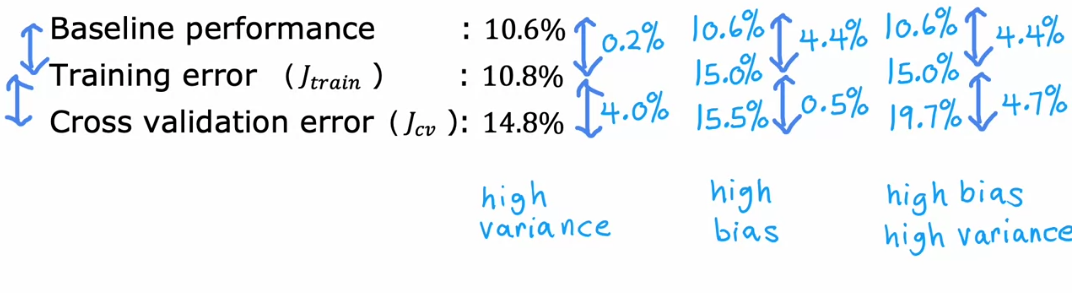 Baseline performance : 10.6% 0.2% 10.6% 4.4% 10.6% 4.4%
Training error (J_train) : 10.8% 15.0% 15.0%
Cross validation error (J_cv): 14.8% 4.0% 15.5% 0.5% 19.7% 4.7%
high high high bias
variance bias high variance